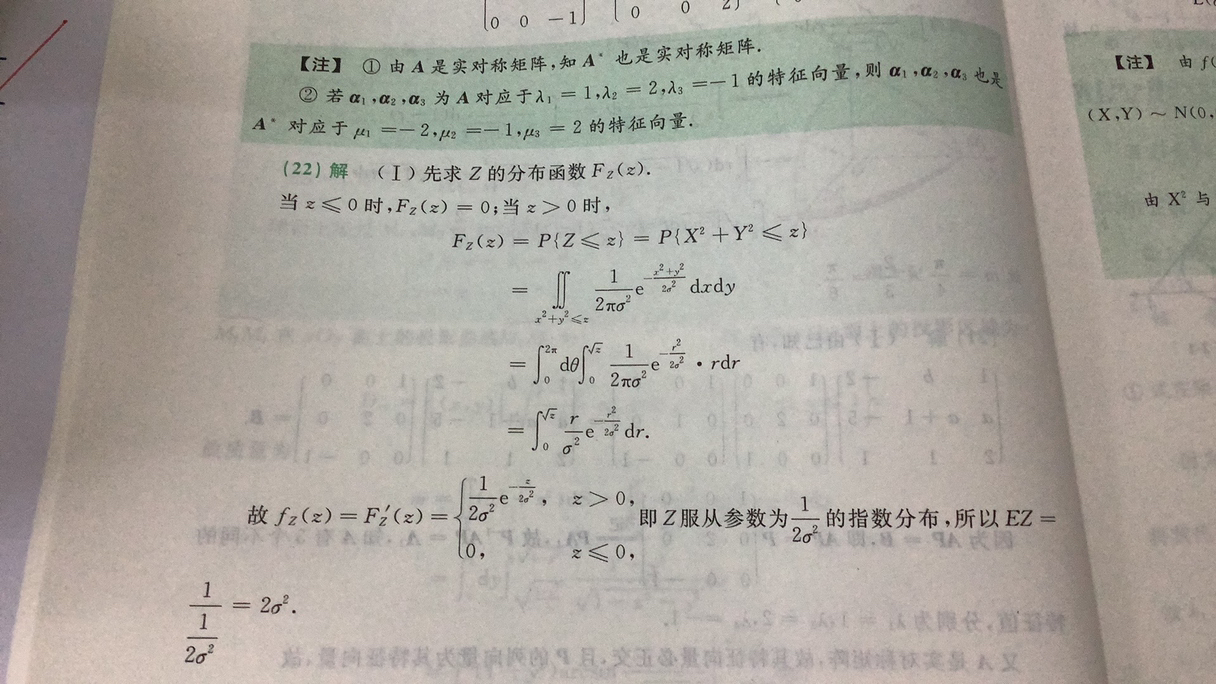 0 0 -1 0 0 2
【注】 ① 由 A 是实对称矩阵,知 A* 也是实对称矩阵.
② 若 α₁,α₂,α₃ 为 A 对应于 λ₁ = 1,λ₂ = 2,λ₃ = -1 的特征向量,则 α₁,α₂,α₃ 也是
A* 对应于 μ₁ = -2,μ₂ = -1,μ₃ = 2 的特征向量.
(22) 解 (Ⅰ) 先求 Z 的分布函数 F_Z(z).
当 z ≤ 0 时,F_Z(z) = 0;当 z > 0 时,
F_Z(z) = P{Z ≤ z} = P{X² + Y² ≤ z}
= ∬_{x²+y²≤z} \frac{1}{2πσ²} e^{-\frac{x²+y²}{2σ²}} dxdy
= ∫_0^{2π} dθ ∫_0^{√z} \frac{1}{2πσ²} e^{-\frac{r²}{2σ²}} · rdr
= ∫_0^{√z} \frac{r}{σ²} e^{-\frac{r²}{2σ²}} dr.
故 f_Z(z) = F_Z′(z) = { \frac{1}{2σ²} e^{-\frac{z}{2σ²}}, z > 0, 即 Z 服从参数为 \frac{1}{2σ²} 的指数分布,所以 EZ =
0, z ≤ 0,
\frac{1}{\frac{1}{2σ²}} = 2σ².
【注】 由 f(
(X,Y) ~ N(0,
由 X² 与